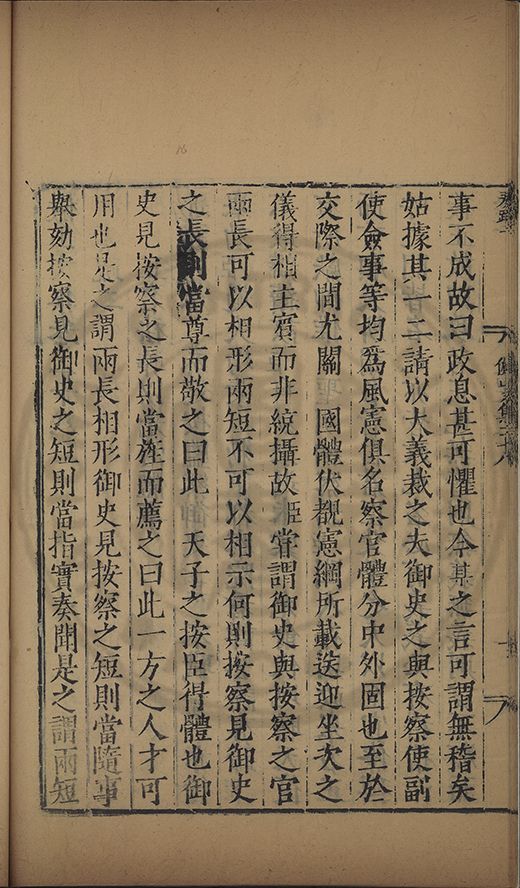 事不成故曰政息甚可懼也今某之言可謂無稽矣
姑據其一二請以大義裁之夫御史之與按察使副
使僉事等均爲風憲俱名察官體分中外固也至於
交際之間尤關　國體伏覩憲綱所載送迎坐次之
儀得相主賓而非統攝故臣嘗謂御史與按察之官
兩長可以相形兩短不可以相示何則按察見御史
之長則當尊而敬之曰此　天子之按臣得體也御
史見按察之長則當旌而薦之曰此一方之人才可
用也是之謂兩長相形御史見按察之短則當隨事
舉劾按察見御史之短則當指實奏聞是之謂兩短